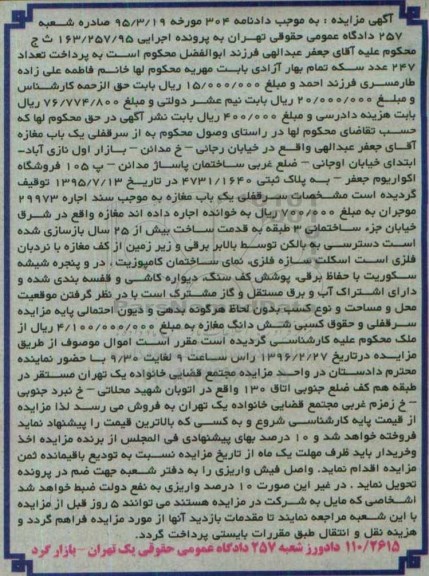 آگهی مزایده : به موجب دادنامه ۳۰۴ مورخه ۹۵/۳/۱۹ صادره شعبه
۲۵۷ دادگاه عمومی حقوقی تهران به پرونده اجرایی ۱۶۳/۲۵۷/۹۵ ث ج
محکوم علیه آقای جعفر عبدالهی فرزند ابوالفضل محکوم است به پرداخت تعداد
۲۴۷ عدد سکه تمام بهار آزادی بابت مهریه محکوم لها خانم فاطمه علی زاده
طارمسری فرزند احمد و مبلغ ۱۵/۰۰۰/۰۰۰ ریال بابت حق الزحمه کارشناس
و مبلغ ۲۰/۰۰۰/۰۰۰ ریال بابت نیم عشر دولتی و مبلغ ۷۶/۷۷۴/۸۰۰ ریال
بابت هزینه دادرسی و مبلغ ۴۰۰/۰۰۰ ریال بابت نشر آگهی در حق محکوم لها که
حسب تقاضای محکوم لها در راستای وصول محکوم به از سرقفلی یک باب مغازه
آقای جعفر عبدالهی واقع در خیابان رجائی – خ مدائن – بازار اول نازی آباد-
ابتدای خیابان اوجانی – ضلع غربی ساختمان پاساژ مدائن – پ ۱۰۵ فروشگاه
اکواریوم جعفر – به پلاک ثبتی ۴۷۳۱/۱۶۴۰ در تاریخ ۱۳۹۵/۷/۱۳ توقیف
گردیده است مشخصات سرقفلی یک باب مغازه به موجب سند اجاره ۲۹۹۷۳
موجران به مبلغ ۷۰۰/۰۰۰ ریال به خوانده اجاره داده اند مغازه واقع در شرق
خیابان جزء ساختمانی ۳ طبقه به قدمت ساخت بیش از ۲۵ سال بازسازی شده
است دسترسی به بالکن توسط بالابر برقی و زیر زمین از کف مغازه با نردبان
فلزی است اسکلت سازه فلزی، نمای ساختمان کامپوزیت ، در و پنجره شیشه
سکوریت با حفاظ برقی، پوشش کف سنگ، دیواره کاشی و قفسه بندی شده و
دارای اشتراک آب و برق مستقل و گاز مشترک است با در نظر گرفتن موقعیت
محل و مساحت و نوع کسب بدون لحاظ هرگونه بدهی و دیون احتمالی پایه مزایده
سرقفلی و حقوق کسبی شش دانگ مغازه به مبلغ ۴/۱۰۰/۰۰۰/۰۰۰ ریال از
ملک محکوم علیه کارشناسی گردیده است مقرر است اموال موصوف از طریق
مزایده درتاریخ ۱۳۹۶/۲/۲۷ راس ساعت ۹ لغایت ۹/۳۰ با حضور نماینده
محترم دادستان در واحد مزایده مجتمع قضایی خانواده یک تهران مستقر در
طبقه هم کف ضلع جنوبی اتاق ۱۳۰ واقع در اتوبان شهید محلاتی – خ نبرد جنوبی
– خ زمزم غربی مجتمع قضایی خانواده یک تهران به فروش می رسد لذا مزایده
از قیمت پایه کارشناسی شروع و به کسی که بالاترین قیمت را پیشنهاد نماید
فروخته خواهد شد و ۱۰ درصد بهای پیشنهادی فی المجلس از برنده مزایده اخذ
وخریدار باید ظرف مهلت یک ماه از تاریخ مزایده نسبت به تودیع باقیمانده ثمن
مزایده اقدام نماید. واصل فیش واریزی را به دفتر شعبه جهت ضم در پرونده
تحویل نماید . در غیر این صورت ۱۰ درصد واریزی به نفع دولت ضبط خواهد شد
اشخاصی که مایل به شرکت در مزایده هستند می توانند ۵ روز قبل از مزایده
با این شعبه مراجعه نمایند تا مقدمات بازدید آنها از مورد مزایده فراهم گردد و
هزینه نقل و انتقال طبق مقررات بایستی پرداخت گردد.
۱۱۰/۲۶۱۵ دادورز شعبه ۲۵۷ دادگاه عمومی حقوقی یک تهران – بازار گرد